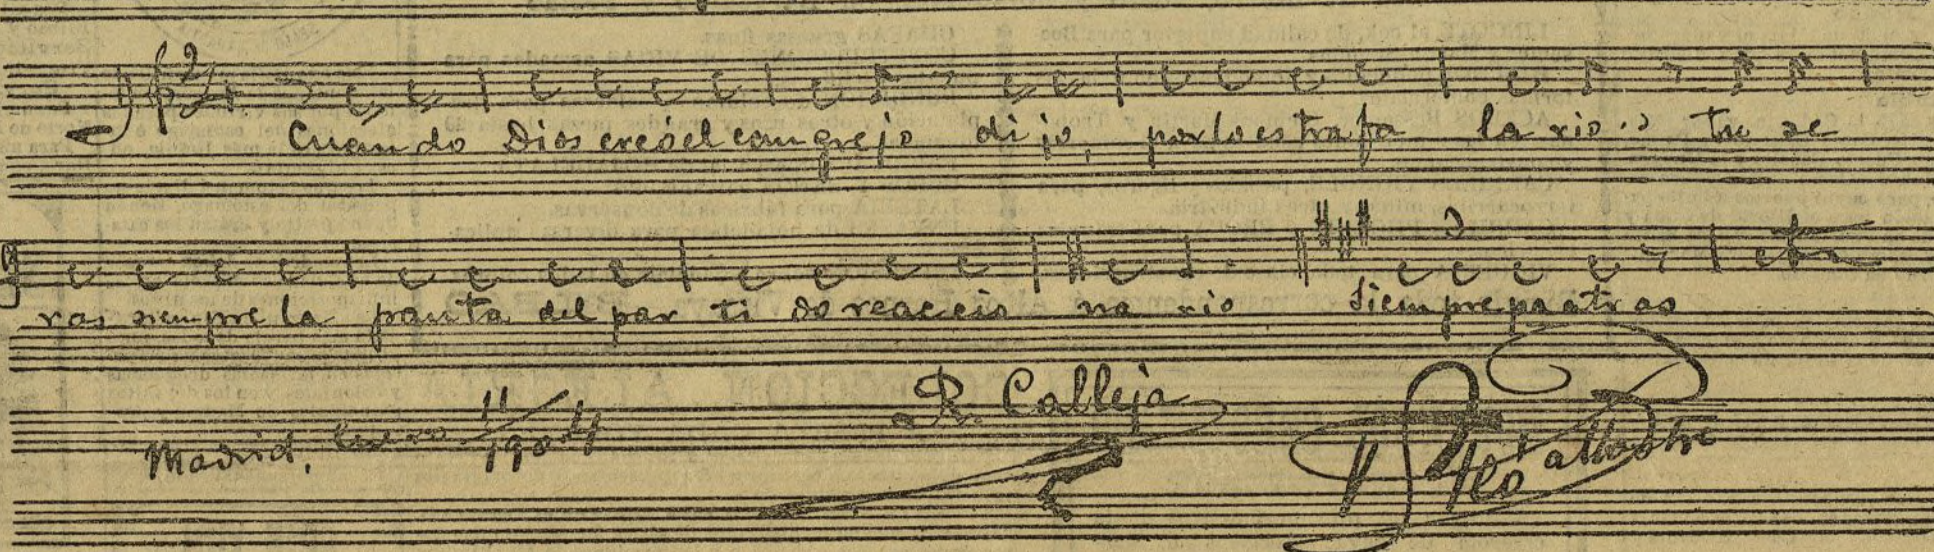 Cuan do Dios creó el can gre jo di jo, por lo es tra fa la rio: tu se
ras siempre la pauta del par ti do reaccio na rio Siempre pa atras
etc
Madrid, Enero 11/1904
R. Calleja